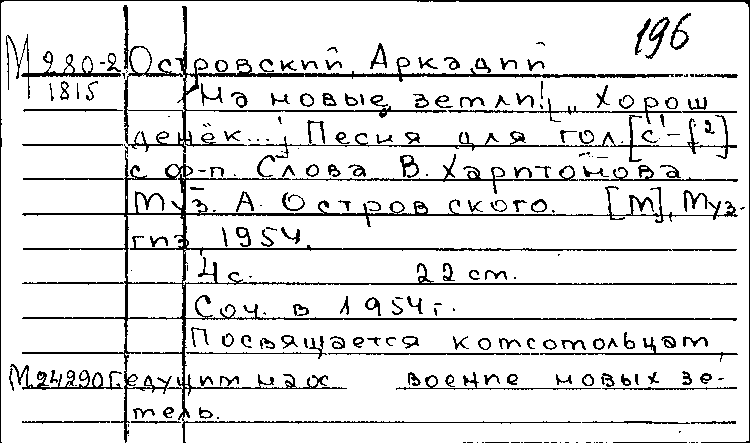 196
М 280-2 Островский, Аркадий
1815 На новые земли! [„Хорош
денёк...] Песня для гол. [c¹-f²]
с ф-п. Слова В. Харитонова.
Муз. А. Островского. [М], Муз-
гиз, 1954.
4 с. 22 cm.
Соч. в 1954 г.
Посвящается комсомольцам,
М24290 г. едущим на ос воение новых зе-
мель.